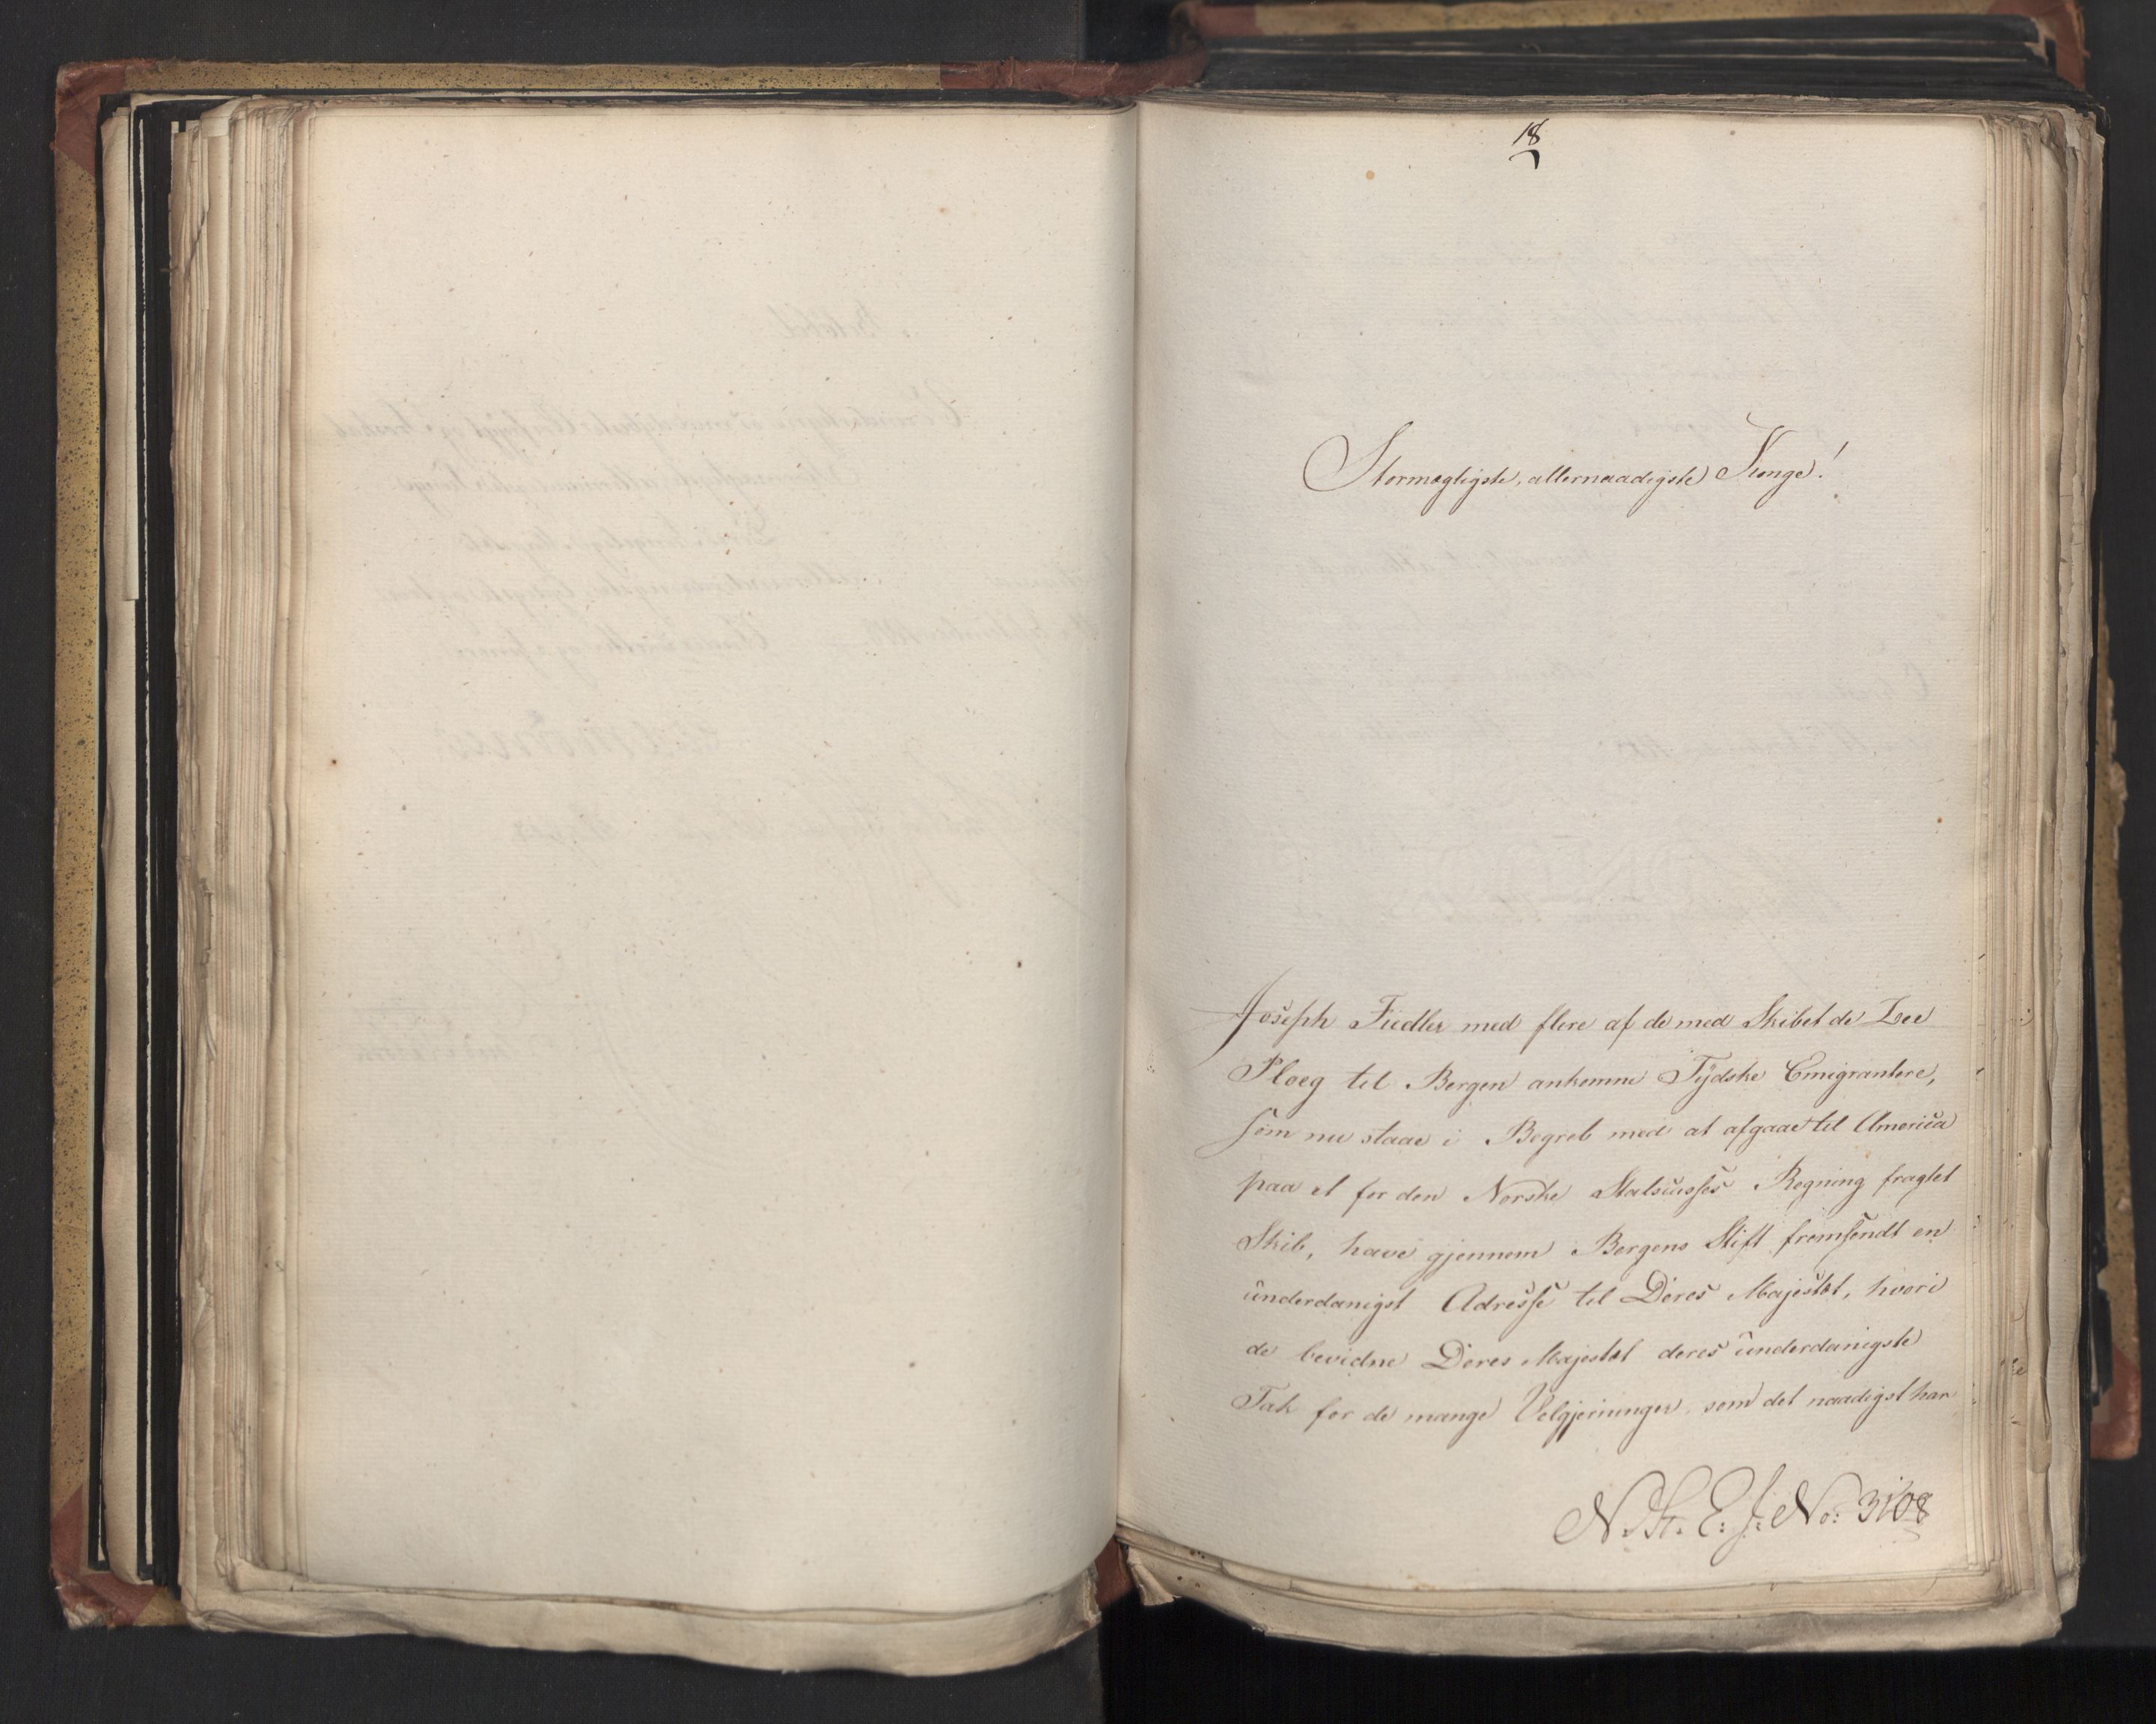 18
Stormægtigste, allernaadigste Konge!
Joseph Fiedler med flere af de med Skibet de Zee
Ploeg til Bergen ankomne Tydske Emigrantere,
som nu staae i Begreb med at afgaae til America
paa et for den Norske Statscasses Regning fragtet
Skib, have gjennem Bergens Stift fremsendt en
underdanigst Adresse til Deres Majestæt, hvori
de bevidne Deres Majestæt deres underdanigste
Tak for de mange Velgjerninger, som det naadigst har
N. St. E. J: No: 3108